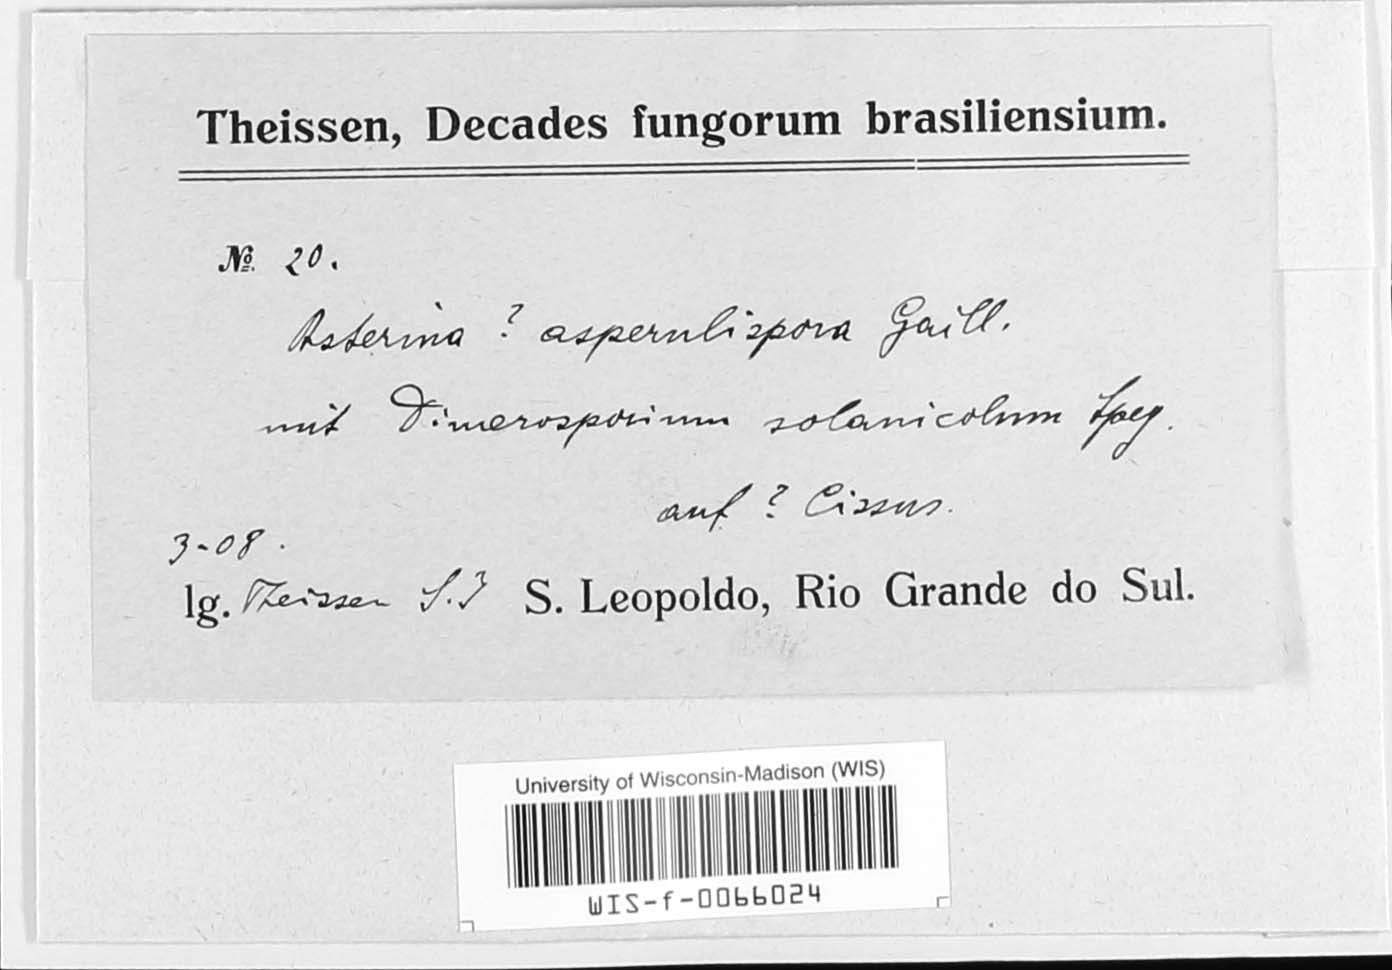 Theissen, Decades fungorum brasiliensium.
№ 20.
Asterina ? asperulispora Gaill.
mit Dimerosporium solanicolum Speg.
auf ? Cissus.
3-08.
lg. Theissen S.J S. Leopoldo, Rio Grande do Sul.
University of Wisconsin-Madison (WIS)
WIS-f-0066024